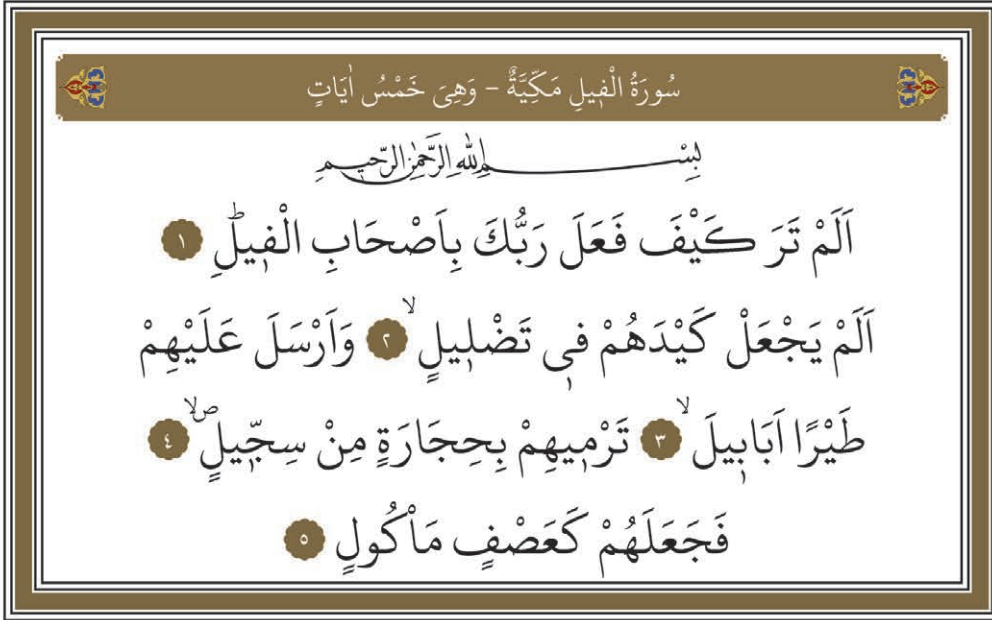 سُورَةُ الْفٖيلِ مَكِّيَّةٌ - وَهِىَ خَمْسُ اٰيَاتٍ
بِسْمِ اللّٰهِ الرَّحْمٰنِ الرَّحٖيمِ
اَلَمْ تَرَ كَيْفَ فَعَلَ رَبُّكَ بِاَصْحَابِ الْفٖيلِؕ ١
اَلَمْ يَجْعَلْ كَيْدَهُمْ فٖى تَضْلٖيلٍۙ ٢ وَاَرْسَلَ عَلَيْهِمْ
طَيْرًا اَبَابٖيلَۙ ٣ تَرْمٖيهِمْ بِحِجَارَةٍ مِنْ سِجّٖيلٍۖۙ ٤
فَجَعَلَهُمْ كَعَصْفٍ مَاْكُولٍ ٥